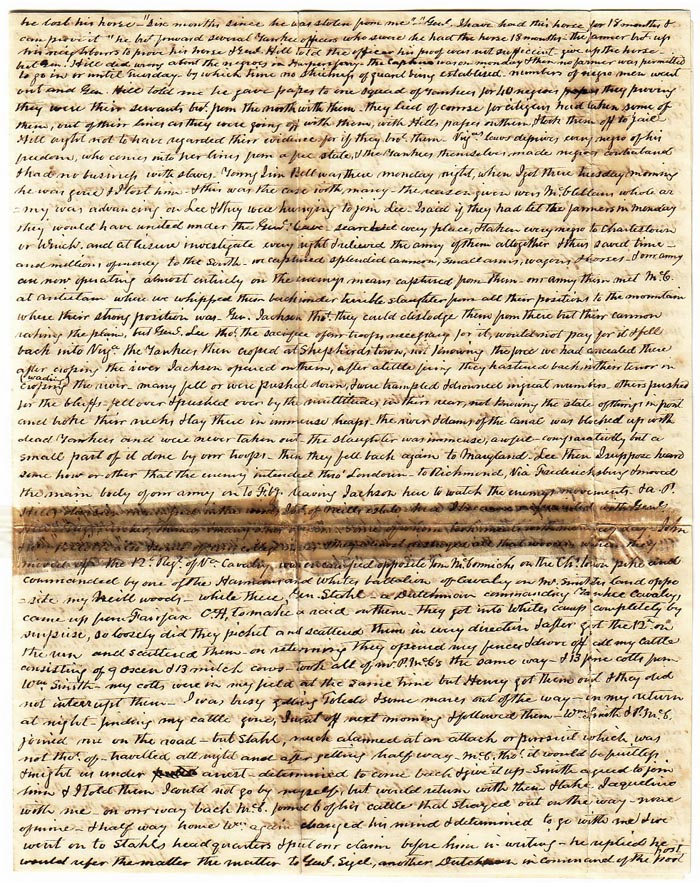 he lost his horse - "six months since he was stolen from me" - "Genl. I have had this horse for 18 months &
can prove it" he bt. forward several Yankee officers who swore he had the horse 18 months - the farmer bt. up
his neighbours to prove his horse & Genl. Hill told the officer his proof was not sufficient give up the horse -
but Gen. Hill did wrong about the negroes in Harpers ferry - the capture was on monday & then no farmer was permitted
to go in or until Tuesday - by which time no strictness of guard being established. numbers of negro men went
out and Gen. Hill told me he gave papers to one squad of Yankees for 40 negroes they proving
they were their servants bt. from the north with them - they lied of course for citizens had taken some of
them, out of their lines as they were going off with them, with Hills papers on them, & took them off to jail
Hill ought not to have regarded their evidence for if they bt. them. Virga. laws deprives every negro of his
freedom, who comes into her lines from a free state, & the Yankees themselves, made negroes contraband
& had no business with slaves - Young Jim Bell was there monday night, when I got there Tuesday morning
he was gone & I lost him - & this was the case with, many - the reason given was McClellans whole ar-
-my was advancing on Lee & they were hurrying to join Lee. I said if they had let the farmers in monday
they would have united under the Genls. leave - searched every place, & taken every negro to Charlestown
or Winchr. and at leisure investigate every right & relieved the army of them altogether & thus saved time -
and millions of money to the South - we captured splendid cannon, small arms, wagons & horses - & our army
are now operating almost entirely on the enemys means captured from them - our army then met McC.
at antietam where we whipped them back under terrible slaughter from all their positions to the mountain
where their strong position was - Gen. Jackson tht. they could dislodge them from there but their cannon
raking the plain, but Genl. Lee tho. the sacrifice of our troops necessary for it, would not pay for it & fell
back into Virga. the Yankees then crossed at Shepherdstown, not knowing the force we had concealed there
after crossing the river Jackson opened on them, after a little firing they hastened back in their terror in
(wading) crossing the river - many fell or were pushed down, & were trampled & drowned in great numbers - others pushed
for the bluffs - fell over & pushed over by the multitude, in their rear, not knowing the state of things in front
and broke their necks & lay there in immense heaps. the river & dams of the canal was blocked up with
dead Yankees and were never taken out. the slaughter was immense; awful - comparatively but a
small part of it done by our troops - then they fell back again to Maryland. Lee then I suppose heard
some how or other that the enemy intended thro' Loudoun - to Richmond, Via Fredericksburg & moved
the main body of our army on to Fbg. leaving Jackson here to watch the enemys movements. & A. P.
moved off the 12th Regt. of Va Cavalry was encamped opposite Tom McCormicks on the Ch: town pike and
commanded by one of the Harmans and Whites battalion of Cavalry on Mr. Smiths land oppo
-site my Neill woods - while there, Gen. Stahl - a Dutchman commanding Yankee Cavalry,
came up from Fairfax C.H, to make a raid on them - they got into Whites camp completely by
surprise, so loosely did they picket and scattered them in every direction & after got the 12th on
the run and scattered them - on returning they opened my fences & drove off all my cattle
consisting of 9 oxen & 13 milch cows - took all of Mr. P. McC's the same way - & 13 fine colts from
Wm. Smith - my colts were in my field at the same time but Henry got them out & they did
not interrupt them - I was busy getting Toledo & some mares out of the way - on my return
at night - finding my cattle gone, I went off next morning & followed them - Wm. Smith & P. McC.
joined me on the road - but Stahl, much alarmed at an attack or pursuit which was
not tho. of - travelled all night and after getting half way - McC. tho. it would be fruitless
& might us under arrest - determined to come back & give it up - Smith agreed to join
him & I told them I could not go by myself, but would return with them & take Jaqueline
with me - on our way back McC. found 6 of his cattle that strayed out on the way - none
of mine - & half way home Wm. again changed his mind & determined to go with me & we
went on to Stahls head quarters & put our claim before him in writing - he replied he
would refer the matter the matter to Genl. Sigel, another Dutchman in command of the post